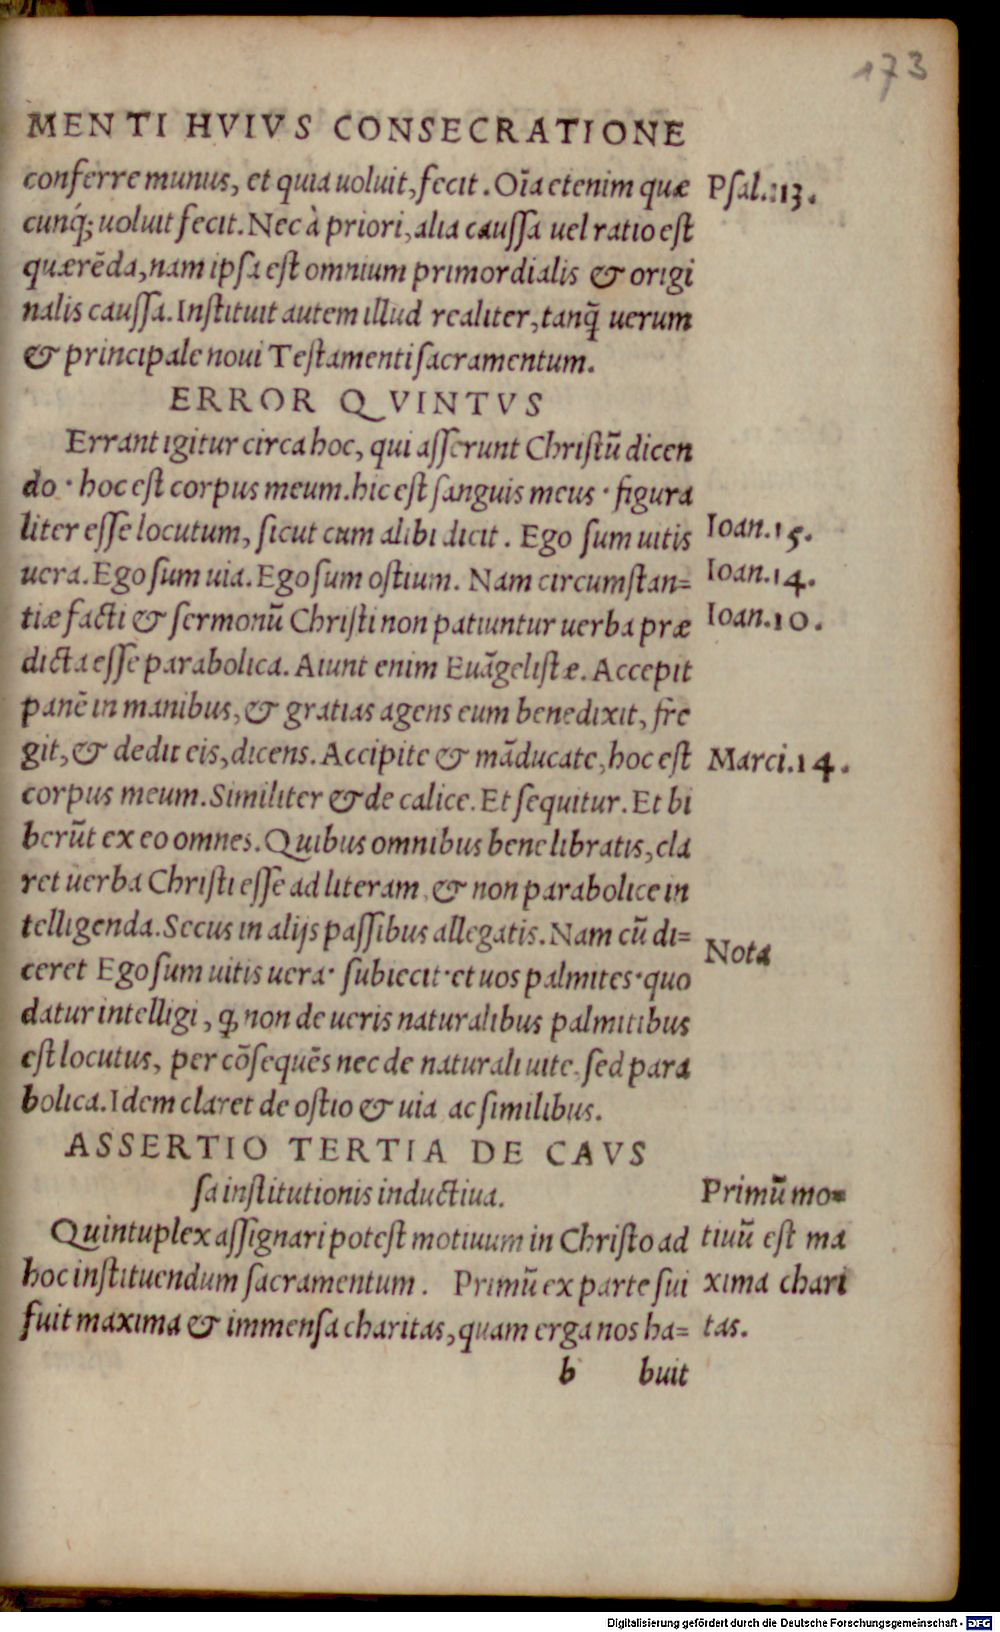 173
MENTI HVIVS CONSECRATIONE
conferre munus, et quia uoluit, fecit. Oĩa etenim quæ
Psal. 113.
cunq́; uoluit fecit. Nec à priori, alia caussa uel ratio est
quærẽda, nam ipsa est omnium primordialis & origi
nalis caussa. Instituit autem illud realiter, tanq̃ uerum
& principale noui Testamenti sacramentum.
ERROR QVINTVS
Errant igitur circa hoc, qui asserunt Christũ dicen
do · hoc est corpus meum. hic est sanguis meus · figura
liter esse locutum, sicut cum alibi dicit. Ego sum uitis
Ioan. 15.
uera. Ego sum uia. Ego sum ostium. Nam circumstan=
Ioan. 14.
tiæ facti & sermonũ Christi non patiuntur uerba præ
Ioan. 10.
dicta esse parabolica. Aiunt enim Euãgelistæ. Accepit
panẽ in manibus, & gratias agens eum benedixit, fre
git, & dedit eis, dicens. Accipite & mãducate, hoc est
Marci. 14.
corpus meum. Similiter & de calice. Et sequitur. Et bi
berũt ex eo omnes. Quibus omnibus bene libratis, cla
ret uerba Christi esse ad literam, & non parabolice in
telligenda. Secus in alijs passibus allegatis. Nam cũ di=
Nota
ceret Ego sum uitis uera · subiecit · et uos palmites · quo
datur intelligi, ꝙ non de ueris naturalibus palmitibus
est locutus, per cõsequẽs nec de naturali uite. sed para
bolica. Idem claret de ostio & uia ac similibus.
ASSERTIO TERTIA DE CAVS
sa institutionis inductiua.
Primũ mo=
Quintuplex assignari potest motiuum in Christo ad
tiuũ est ma
hoc instituendum sacramentum. Primũ ex parte sui
xima chari
fuit maxima & immensa charitas, quam erga nos ha=
tas.
b buit
Digitalisierung gefördert durch die Deutsche Forschungsgemeinschaft - DFG